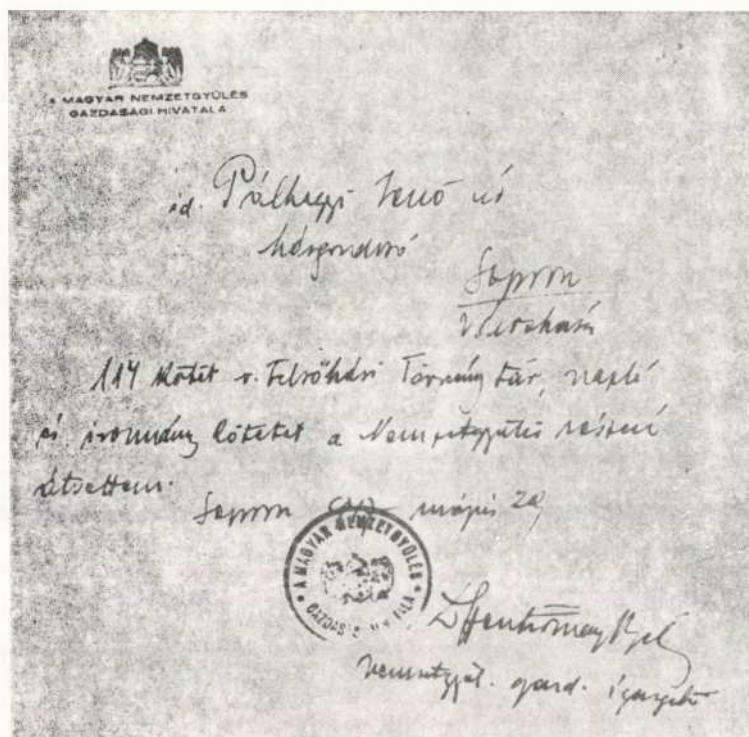 A MAGYAR NEMZETGYÜLÉS
GAZDASÁGI HIVATALA
id. Pálhegyi Jenő úr
házgondnok
Sopron
Városháza
114 kötet v. Felsőházi Törvénytár, napló
és iromány kötetet a Nemzetgyűlés részére
átvettem.
Sopron május 29
A MAGYAR NEMZETGYÜLÉS
Nemzetgyűl. gazd. igazgató